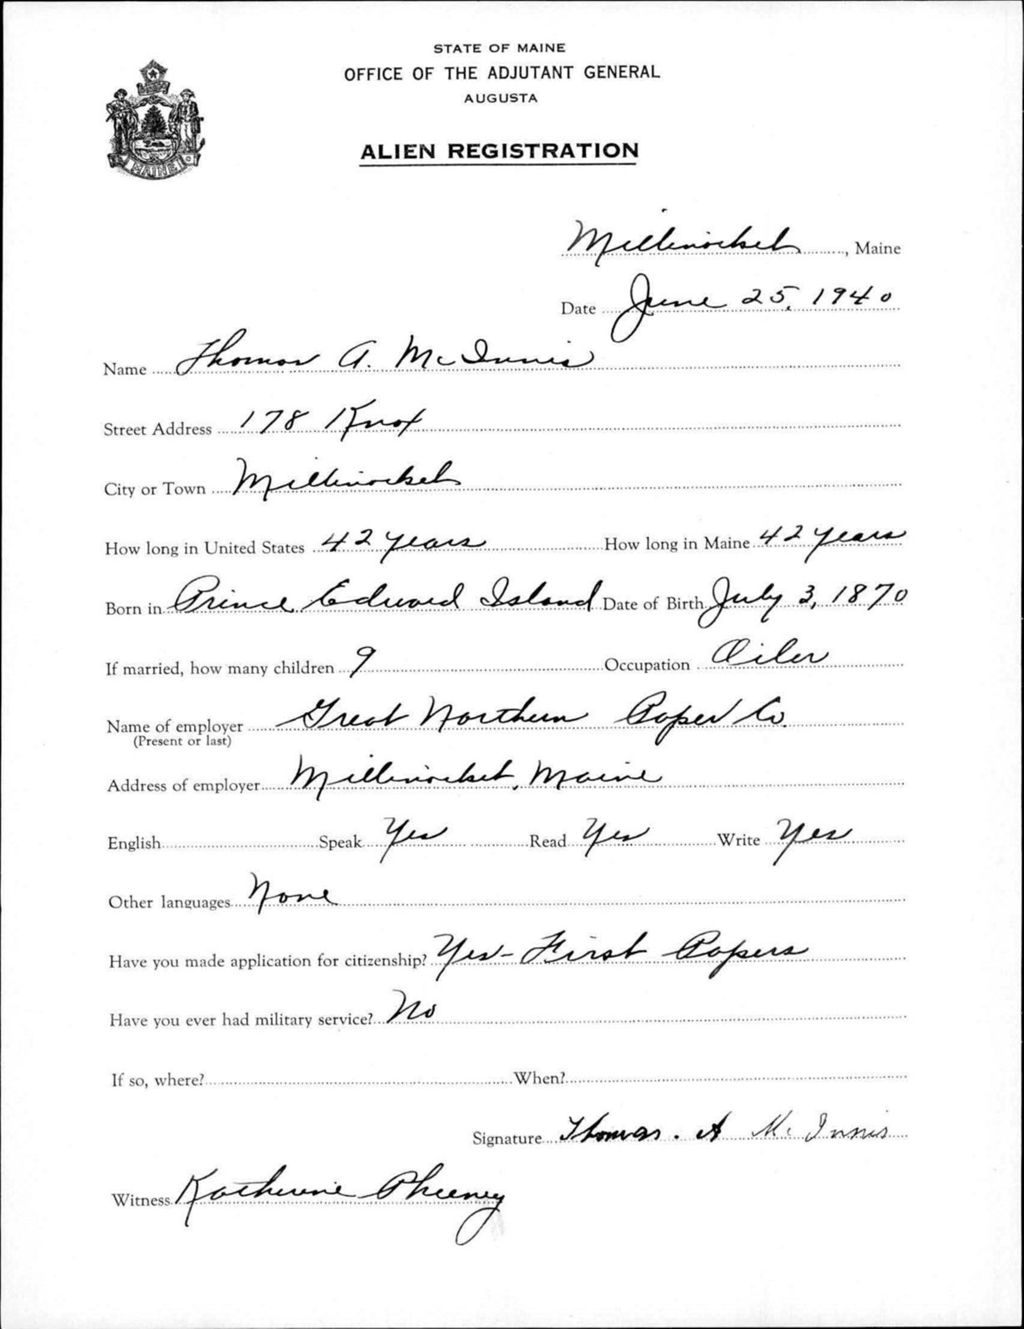 STATE OF MAINE
OFFICE OF THE ADJUTANT GENERAL
AUGUSTA
ALIEN REGISTRATION
MAINE
Millinocket, Maine
Date June 25, 1940
Name Thomas A. McInnis
Street Address 178 Knox
City or Town Millinocket
How long in United States 42 years How long in Maine 42 years
Born in Prince Edward Island Date of Birth July 3, 1870
If married, how many children 9 Occupation Oiler
Name of employer Great Northern Paper Co.
(Present or last)
Address of employer Millinocket, Maine
English Speak Yes Read Yes Write Yes
Other languages None
Have you made application for citizenship? Yes - First Papers
Have you ever had military service? No
If so, where? When?
Signature Thomas. A Mc Innis
Witness Katherine Pheeney